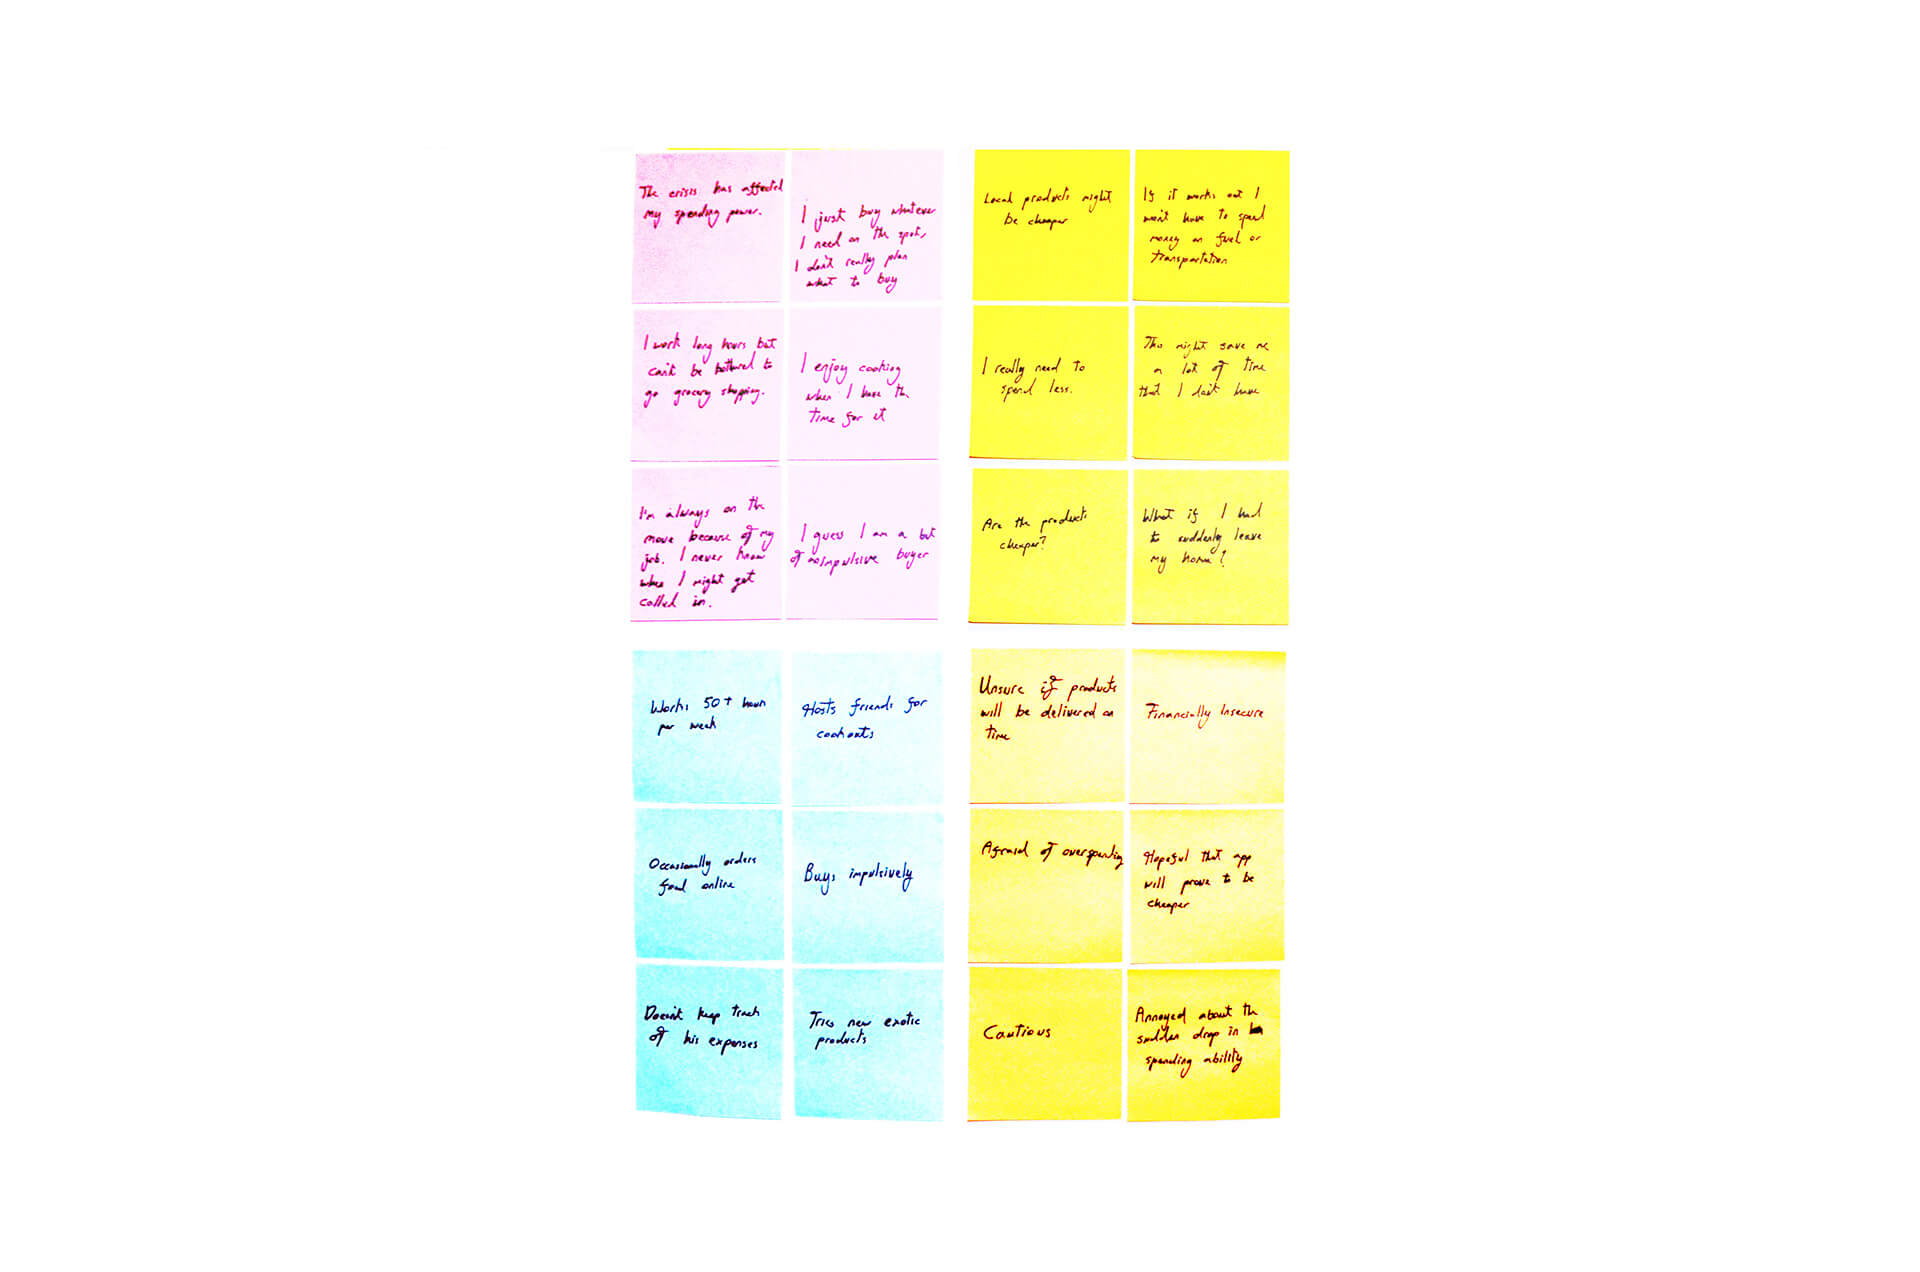 The crisis has affected
my spending power.
I just buy whatever
I need on the spot,
I don't really plan
what to buy
I work long hours but
can't be bothered to
go grocery shopping.
I enjoy cooking
when I have the
time for it
I'm always on the
move because of my
job. I never know
when I might get
called in.
I guess I am a bit
of impulsive buyer
Local products might
be cheaper
If it works out I
won't have to spend
money on fuel or
transportation
I really need to
spend less.
This might save me
a lot of time
that I don't have
Are the products
cheaper?
What if I had
to suddenly leave
my home?
Works 50+ hours
per week
Hosts friends for
cookouts
Occasionally orders
food online
Buys impulsively
Doesn't keep track
of his expenses
Tries new exotic
products
Unsure if products
will be delivered on
time
Financially Insecure
Afraid of overspending
Hopeful that app
will prove to be
cheaper
Cautious
Annoyed about the
sudden drop in
spending ability